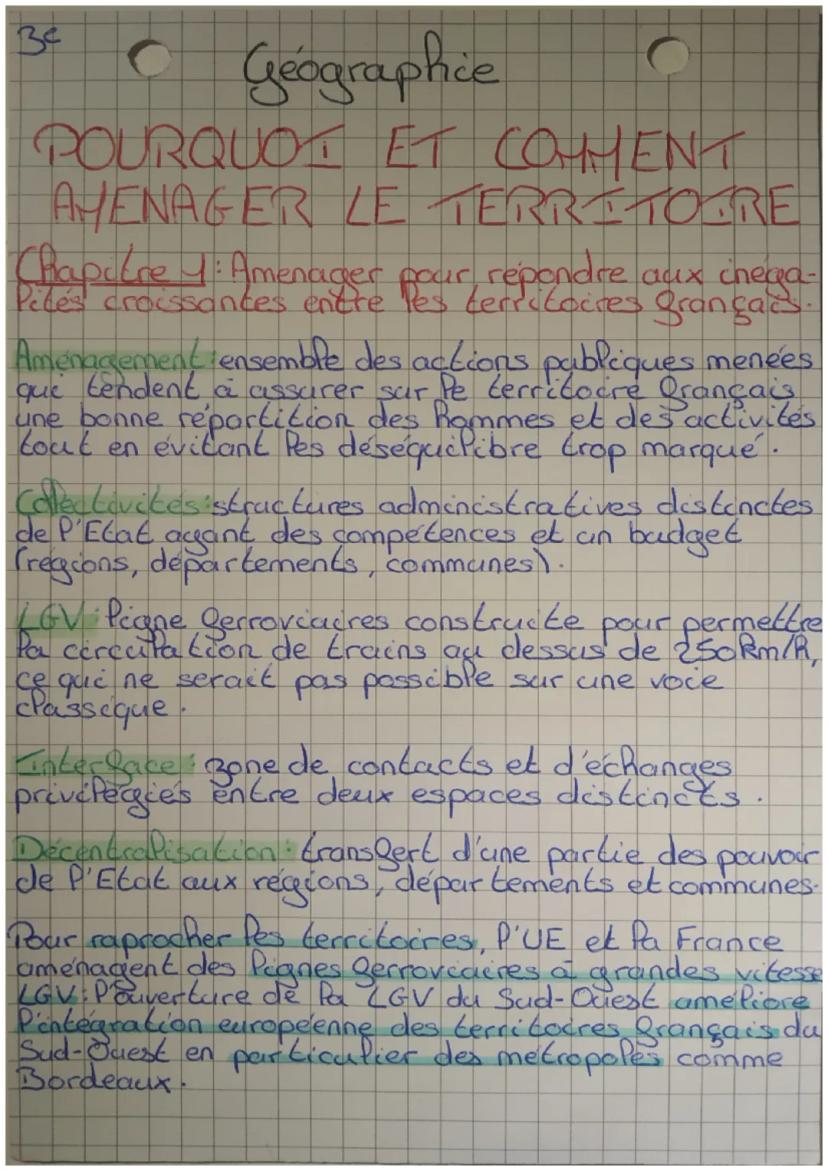 3e
Géographie
POURQUOI ET COMMENT
AMENAGER LE TERRITOIRE
Chapitre 1: Amenager pour répondre aux inéga-
lités croissantes entre les territoires français.
Aménagement: ensemble des actions publiques menées
qui tendent à assurer sur le territoire français
une bonne répartition des hommes et des activités
tout en évitant les déséquilibre trop marqué.
Collectivités: structures administratives distinctes
de l'Etat ayant des compétences et un budget
(régions, départements, communes).
LGV: ligne ferroviaires construite pour permettre
la circulation de trains au dessus de 250km/h,
ce qui ne serait pas possible sur une voie
classique.
Interface: zone de contacts et d'échanges
privilégiés entre deux espaces distincts.
Décentralisation: transfert d'une partie des pouvoir
de l'Etat aux régions, départements et communes.
Pour raprocher les territoires, l'UE et la France
aménagent des lignes ferroviaires à grandes vitesse
LGV: l'ouverture de la LGV du Sud-Ouest améliore
l'intégration européenne des territoires français du
Sud-Ouest en particulier des métropoles comme
Bordeaux.